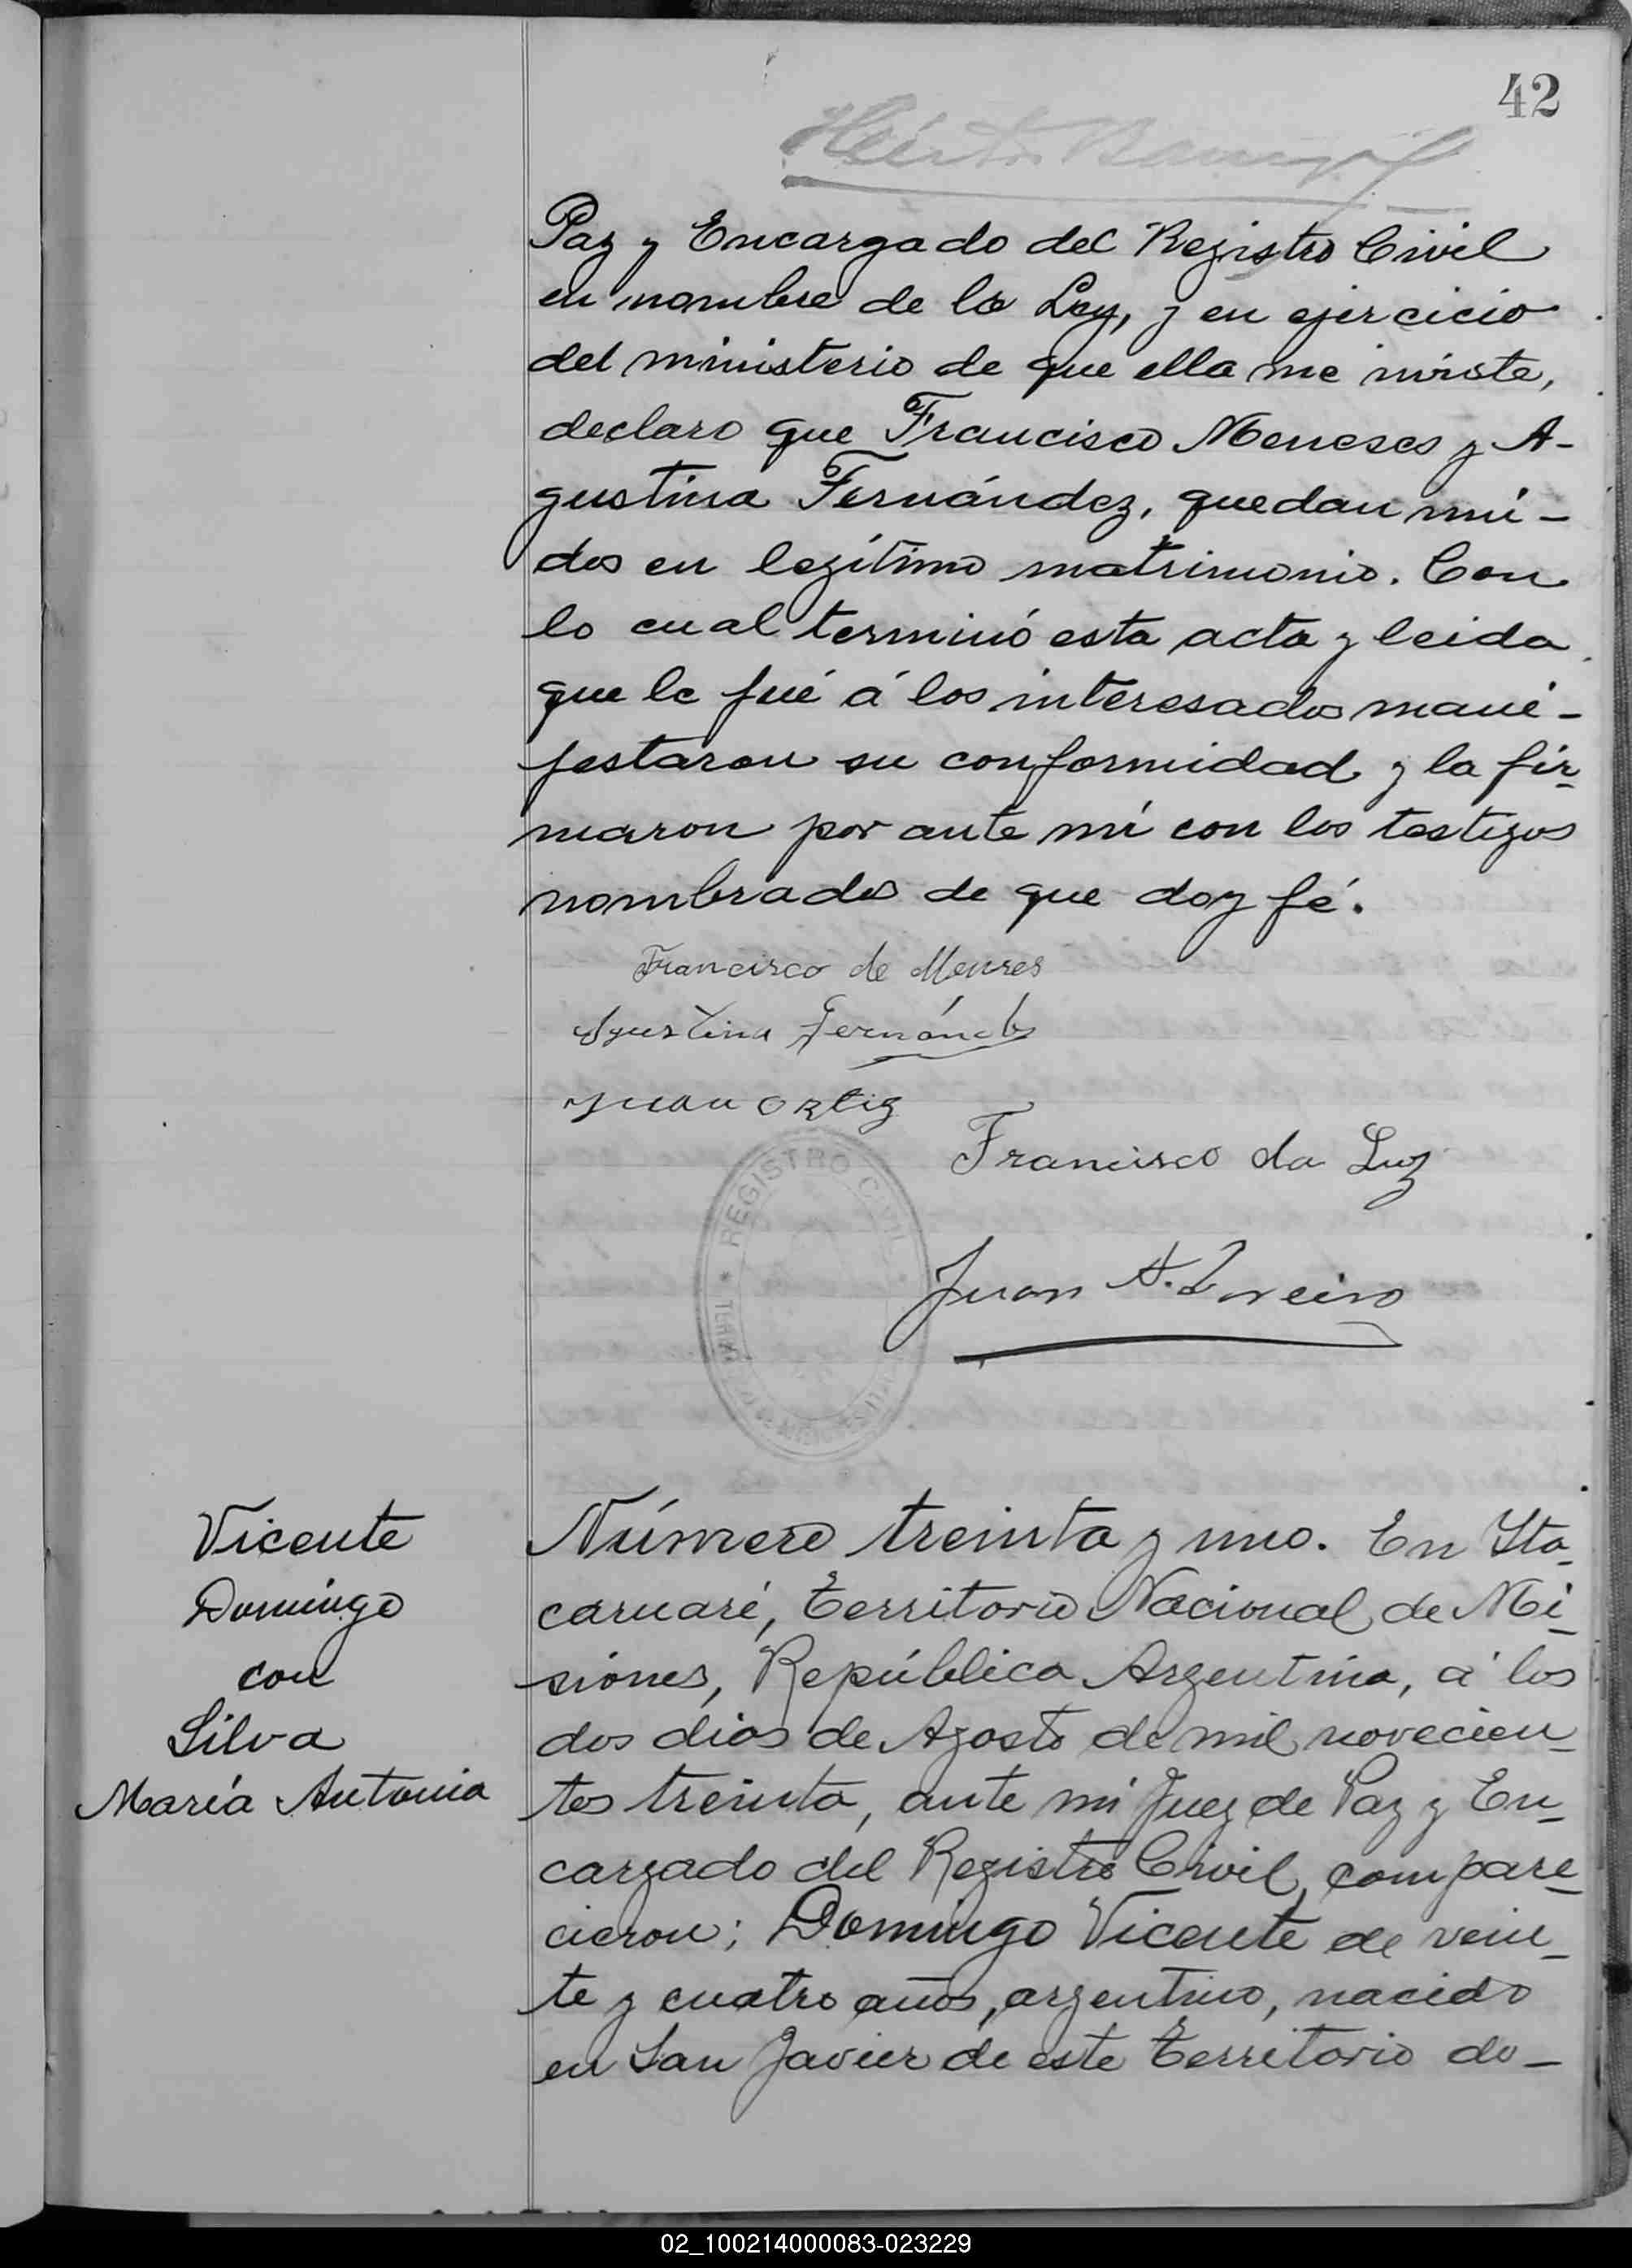 42
Paz y Encargado del Registro Civil
en nombre de la Ley, y en ejercicio
del ministerio de que ella me inviste,
declaro que Francisco Meneses y A-
gustina Fernández, quedan uni-
dos en legítimo matrimonio. Con
lo cual terminó esta acta y leida
que le fué á los interesados mani-
festaron su conformidad y la fir-
maron por ante mí con los testigos
nombrados de que doy fé.
Francisco de Menses
Agustina Fernández
Juan Ortiz
REGISTRO CIVIL
Francisco da Luz
Juan A.
Vicente
Domingo
con
Silva
María Antonia
Número treinta y uno. En Ita-
caruaré, Territorio Nacional de Mi-
siones, República Argentina, á los
dos dias de Agosto de mil novecien-
tos treinta, ante mí Juez de Paz y En-
cargado del Registro Civil, compare-
cieron; Domingo Vicente de vein-
te y cuatro años, argentino, nacido
en San Javier de este Territorio do-
02_100214000083-023229